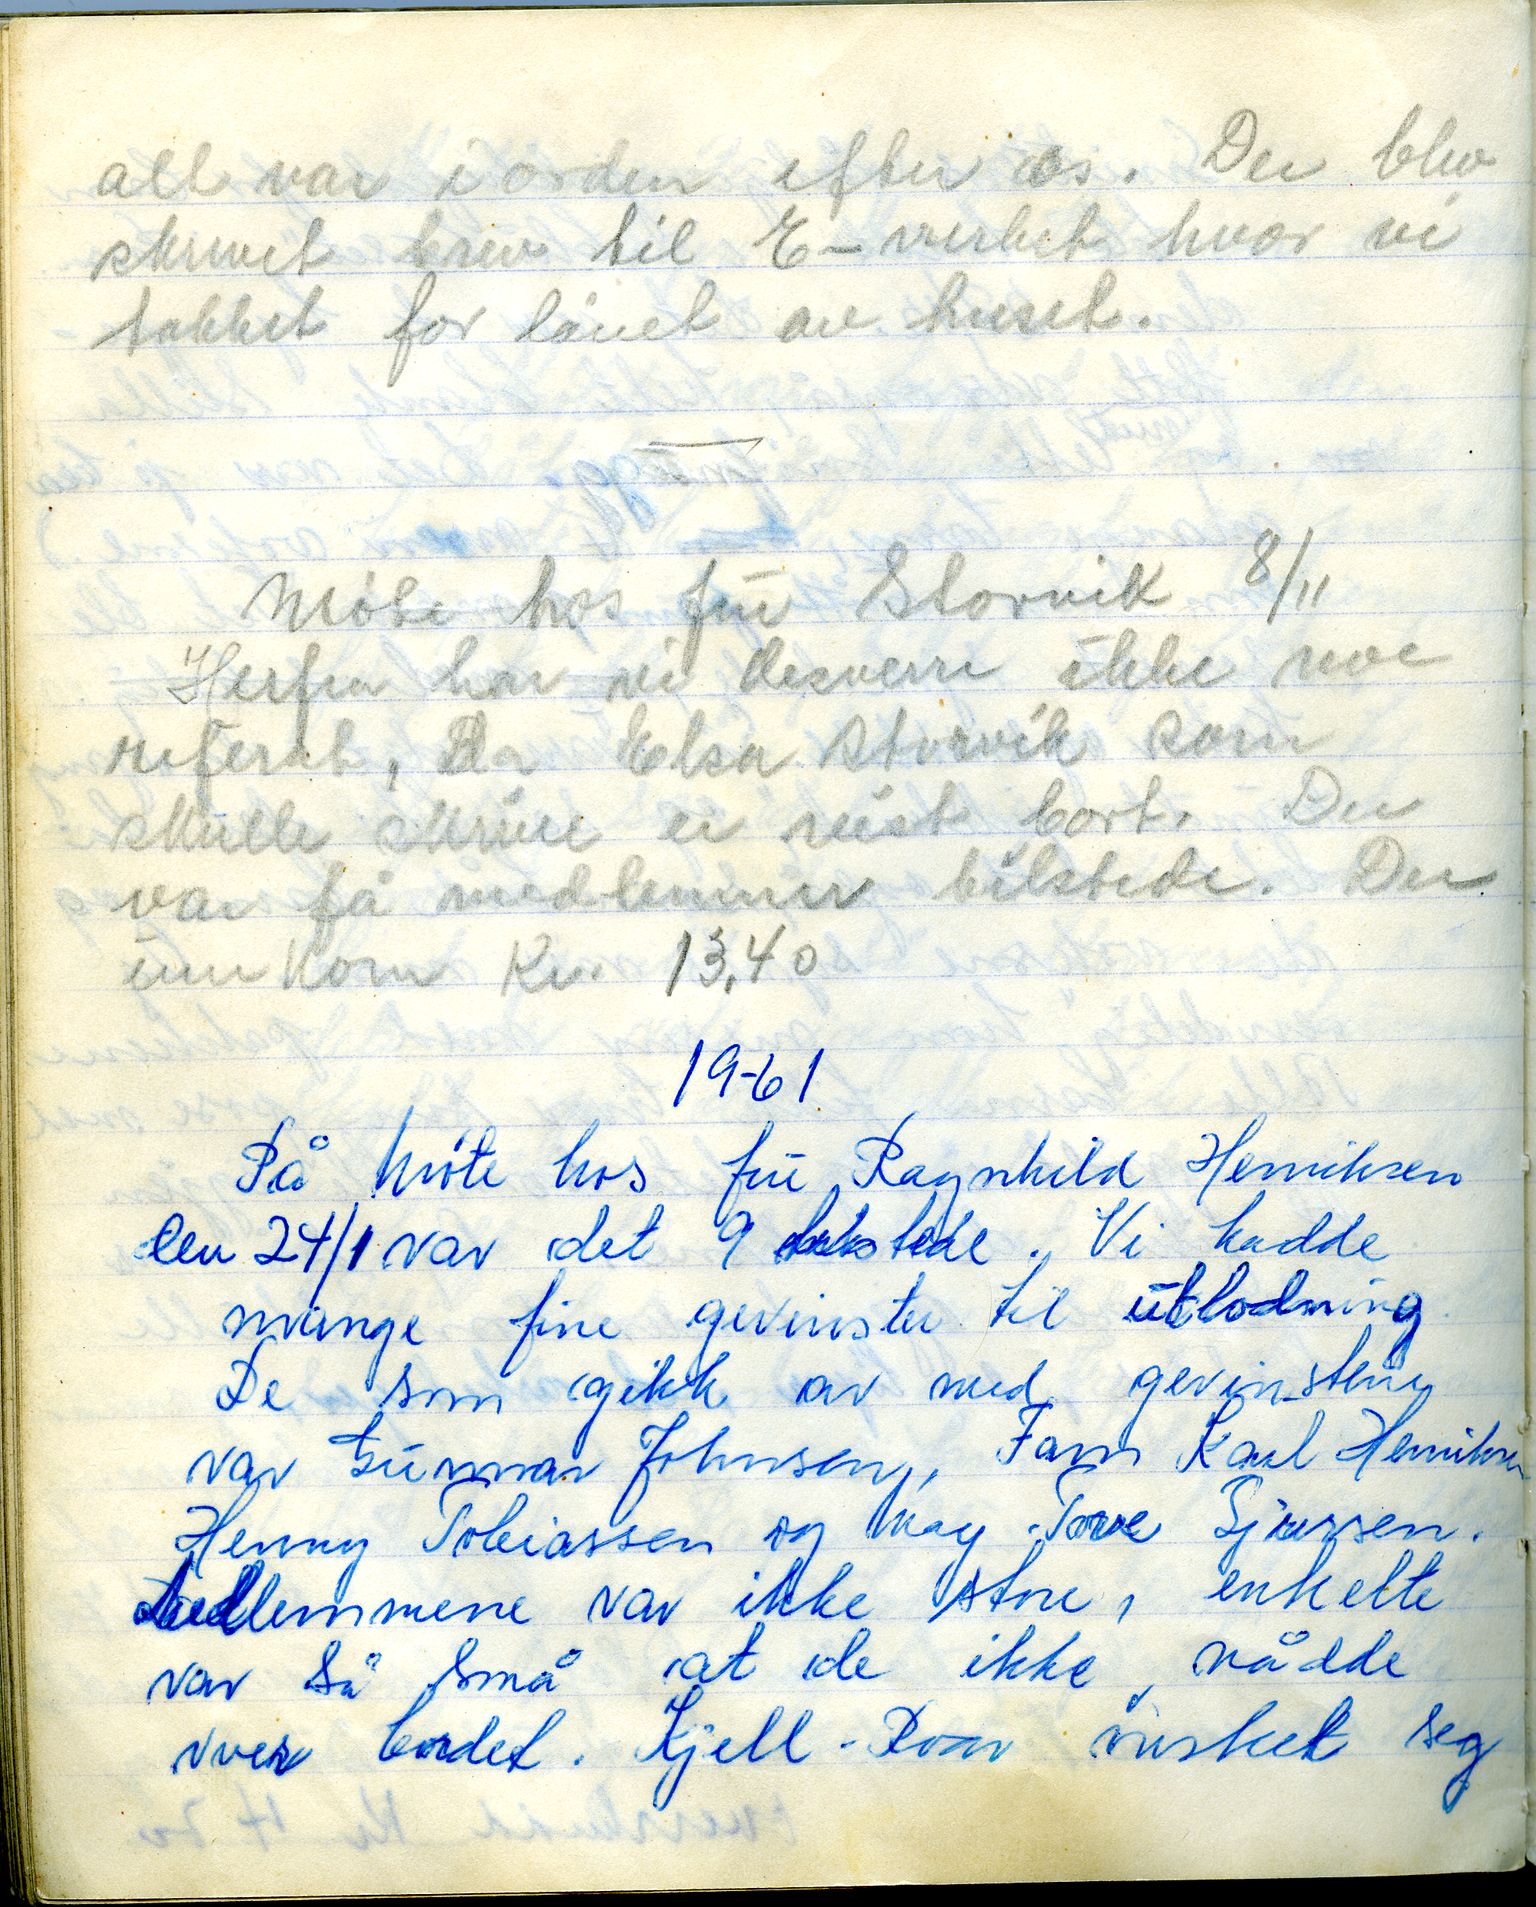 alt var i orden efter os. Der blev
skrevet brev til E-verket hvor vi
takket for lånet av huset.
Möte hos frü Storvik 8/11
Herfra har vi desverre ikke noe
referat, da Elsa Storvik som
skülle skrive er reist bort. Der
var få medlemmer tilstede. Der
inn kom Kr. 13,40
1961
På Möte hos frü Ragnhild Henriksen
den 24/1 var det 9 tilstede. Vi hadde
mange fine gevinster til ütlodning
De som gikk av med gevinstene
var Günnar Johnsen, Fam Karl Henriksen
Henny Tobiassen og May-Tove Sjursen.
Medlemmene var ikke store, enkelte
var så små at de ikke nådde
over bordet. Kjell-Roar önsket seg